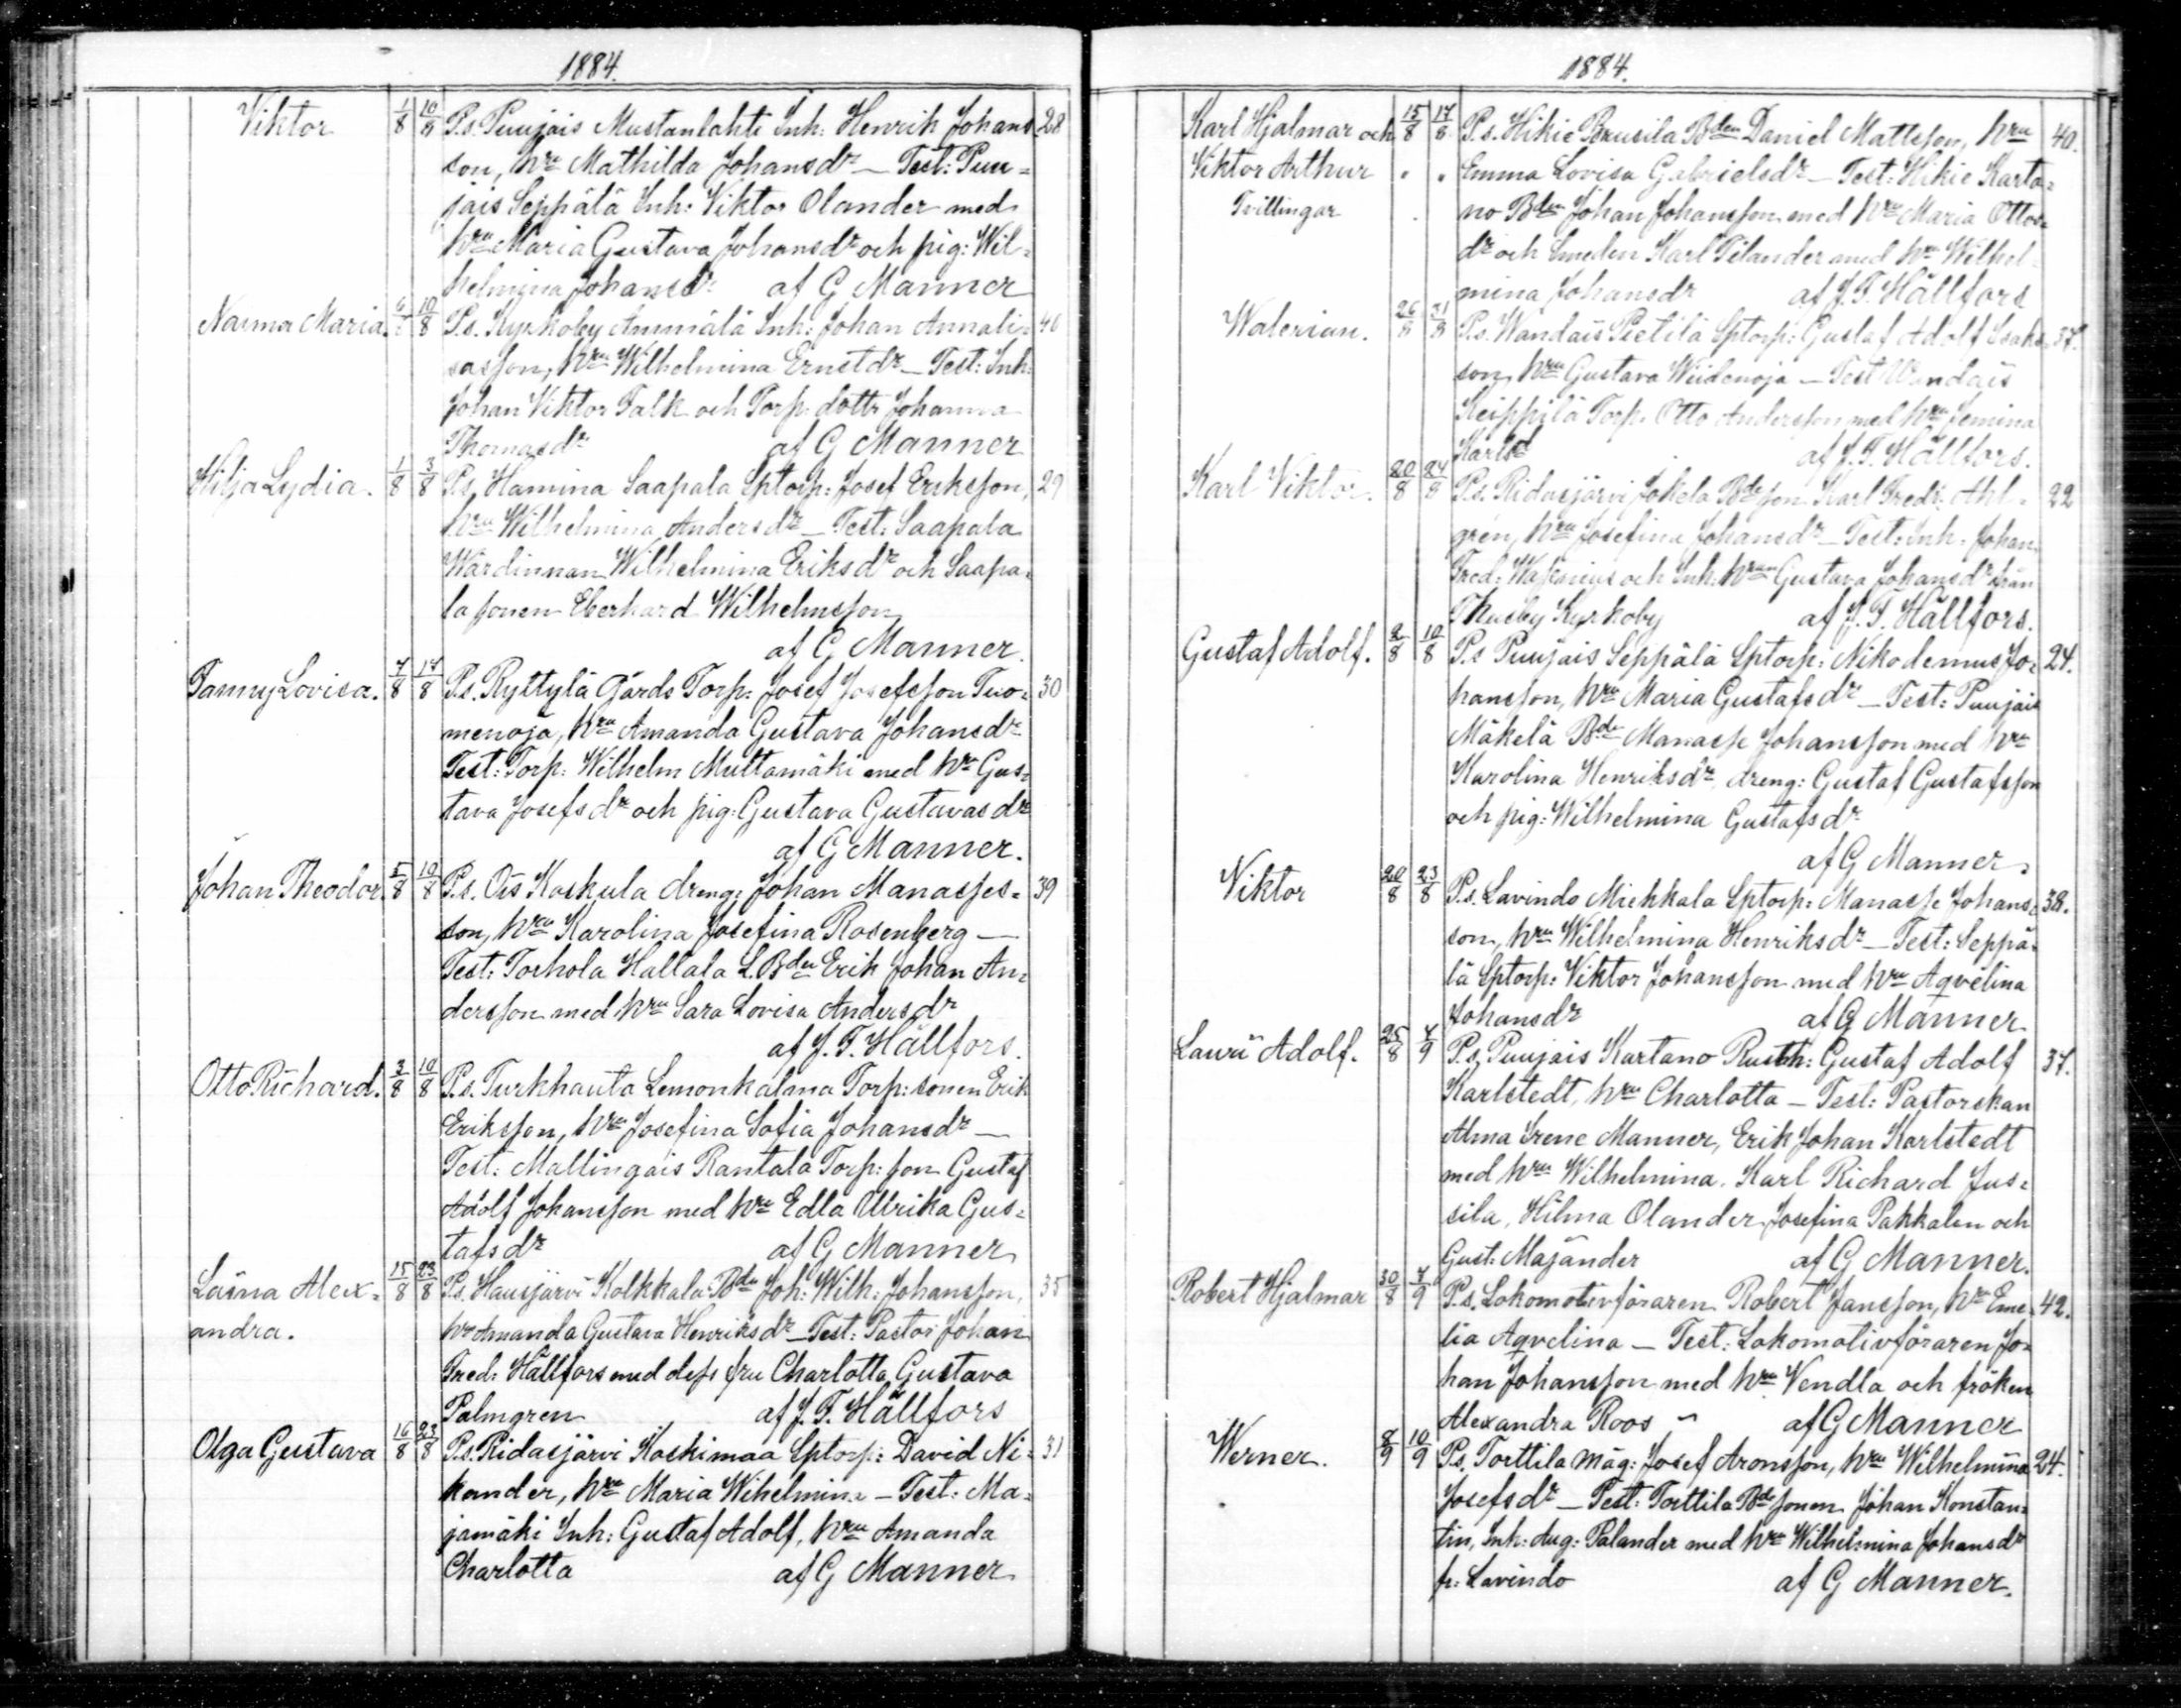 1884.
Viktor 1/8 10/8 P.s. Puujais Mustanlahti Inh: Henrik Johans 28
son, hru Mathilda Johansdr — Test: Puu=
jais Seppälä Inh: Viktor Olander med
hru Maria Gustava Johansdr och pig: Wil=
helmina Johansdr af G Manner
Naima Maria. 10/8 P.s. Kyrkoby Ammälä Inh: Johan Annali= 40
sasson, hru Wilhelmina Ernstdr — Test: Inh:
Johan Viktor Falk och Torp. dottr Johanna
Thomasdr af G Manner
Hilja Lydia. 1/8 3/8 P.s. Hamina Saapala Sptorp: Josef Eriksson, 29
hru Wilhelmina Andersdr — Test: Saapala
Wärdinnan Wilhelmina Eriksdr och Saapa=
la sonen Eberhard Wilhelmsson
af G Manner.
Fanny Lovisa. 7/8 17/8 P.s. Ryttylä Gårds Torp: Josef Josefsson Tuo= 30
menoja, hru Amanda Gustava Johansdr
Test: Torp: Wilhelm Muttamäki med hru Gus=
tava Josefsdr och pig: Gustava Gustavasdr
af G Manner.
Johan Theodor 5/8 10/8 P.s. Ois Koskula dreng: Johan Manasses= 39
son, hru Karolina Josefina Rosenberg —
Test: Torhola Hallala L. Bden Erik Johan An=
dersson med hru Sara Lovisa Andersdr
af J. F. Hällfors.
Otto Richard. 3/8 10/8 P.s. Turkhauta Lemonkalma Torp: sonen Erik
Eriksson, hru Josefina Sofia Johansdr —
Test: Mallingais Rantala Torp: son Gustaf
Adolf Johansson med hru Edla Ulrika Gus=
tafsdr af G Manner
Laina Alex= 15/8 23/8 P.s. Hausjärvi Kolkkala Bdn Joh: Wilh: Johansson, 35
andra. hru Amanda Gustava Henriksdr — Test: Pastor Johan
Fred: Hällfors med dess fru Charlotta Gustava
Palmgren af J. F. Hällfors
Olga Gustava 16/8 23/8 P.s. Ridasjärvi Koskimaa Sptorp: David Ni= 31
kander, hru Maria Wihelmina — Test: Ma=
jamäki Inh: Gustaf Adolf, hru Amanda
Charlotta af G Manner
1884.
Karl Hjalmar och 15/8 17/8 P.s. Hikie Brusila Bden Daniel Mattsson, hru 40.
Viktor Arthur " " Emma Lovisa Gabrielsdr — Test: Hikie Karta=
Tvillingar no Bden Johan Johansson med hru Maria Ottos=
dr och Smeden Karl Tilander med hru Wilhel=
mina Johansdr af J. F. Hällfors
Walerian. 26/8 31/8 P.s. Wandais Pietilä Sptorp: Gustaf Adolf Isaks 37.
son, hru Gustava Wiidenoja — Test Wandais
Keippilä Torp. Otto Andersson med hru Jemina
Karlsd af J. F. Hällfors.
Karl Viktor. 20/8 24/8 P.s. Ridasjärvi Jokela Bde son Karl Fredr. Ahl= 22
gren, hru Josefina Johansdr — Test: Inh: Johan
Fred: och Inh: hrun Gustava Johansdr från
Thusby Kyrkoby af J. F. Hällfors.
Gustaf Adolf. 2/8 10/8 P.s Puujais Seppälä Sptorp: Nikodemus Jo= 24.
hansson, hru Maria Gustafsdr — Test: Puujais
Mäkelä Bde Manasse Johansson med hru
Karolina Henriksdr, dreng: Gustaf Gustafsson
och pig: Wilhelmina Gustafsdr
af G Manner.
Viktor 20/8 23/8 P.s. Lavindo Miekkala Sptorp: Manasse Johans= 38.
son, hru Wilhelmina Henriksdr — Test: Seppä=
lä Sptorp: Viktor Johansson med hru Aqvelina
Johansdr af G Manner
Lauri Adolf. 25/8 7/9 P.s. Puujais Kartano Rusth: Gustaf Adolf 37.
Karlstedt, hru Charlotta — Test: Pastorskan
Alma Irene Manner, Erik Johan Karlstedt
med hru Wilhelmina. Karl Richard Jus=
sila, Hilma Olander, Josefina Pakkalen och
Gust: Majander af G Manner.
Robert Hjalmar 30/8 7/9 P.s. Lokomotivföraren Robert Jansson, hru Eme= 42.
lia Aqvelina — Test: Lokomotivföraren Jo=
han Johansson med hru Vendla och fröken
Alexandra Roos af G Manner
Werner. 8/9 10/9 P.s. Torttila Måg: Josef Aronsson, hru Wilhelmina 24.
Josefsdr — Test: Torttila Bde sonen Johan Konstan=
tin, Inh: Aug: Palander med hru Wilhelmina Johansdr
fr: Lavindo af G Manner.